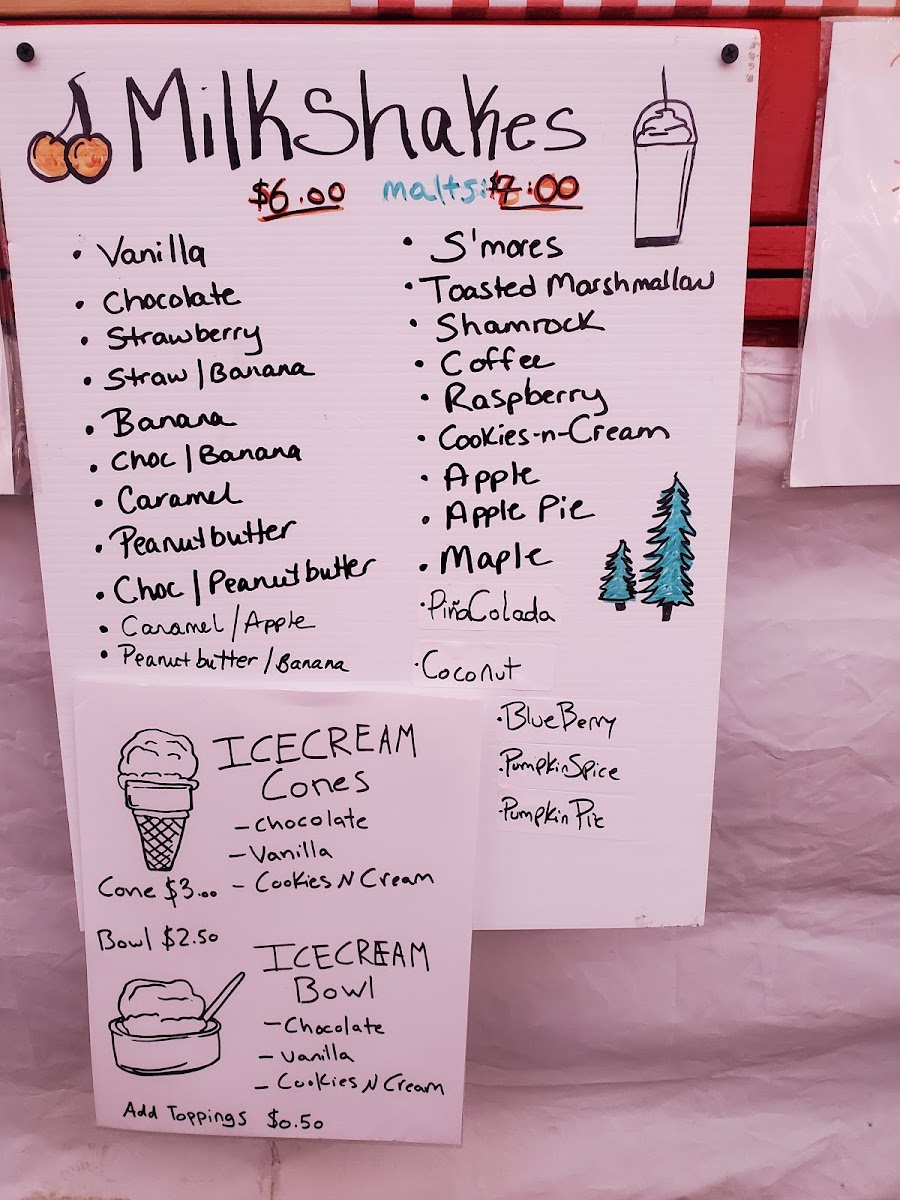 MilkShakes
$6.00 malts: $7.00
• Vanilla
• Chocolate
• Strawberry
• Straw | Banana
• Banana
• Choc | Banana
• Caramel
• Peanutbutter
• Choc | Peanutbutter
• Caramel / Apple
• Peanut butter / Banana
• S'mores
• Toasted Marshmallow
• Shamrock
• Coffee
• Raspberry
• Cookies-n-Cream
• Apple
• Apple Pie
• Maple
• Piña Colada
• Coconut
• BlueBerry
• Pumpkin Spice
• Pumpkin Pie
ICECREAM
Cones
- Chocolate
- Vanilla
- Cookies N Cream
Cone $3.00
Bowl $2.50
ICECREAM
Bowl
- Chocolate
- Vanilla
- Cookies N Cream
Add Toppings $0.50